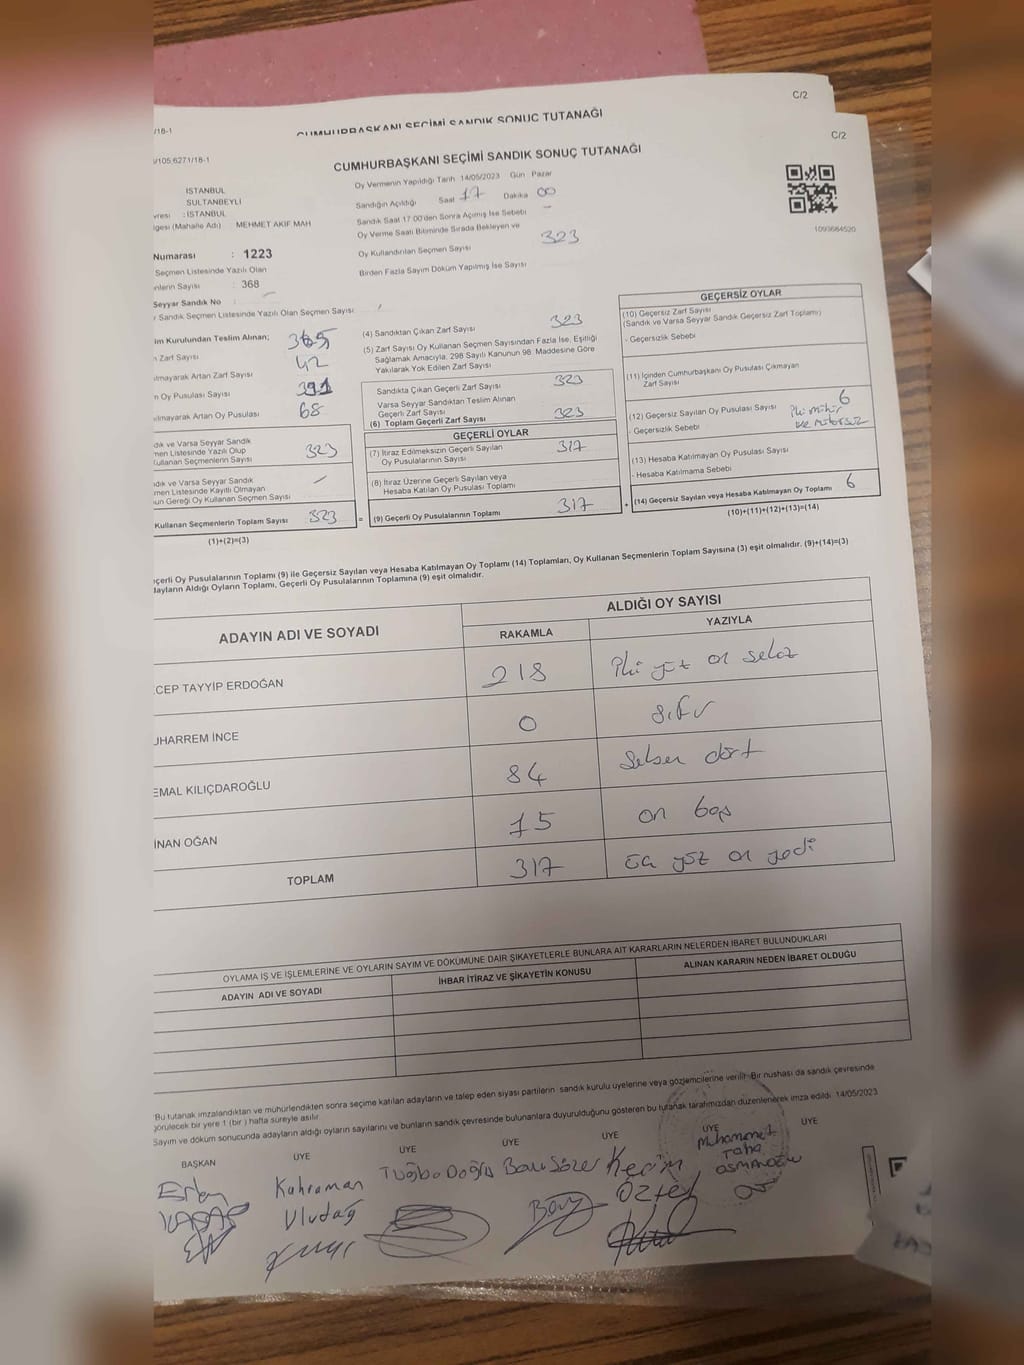 C/2
/18-1
CUMHURBAŞKANI SEÇİMİ SANDIK SONUÇ TUTANAĞI
C/2
/105:6271/18-1
CUMHURBAŞKANI SEÇİMİ SANDIK SONUÇ TUTANAĞI
İSTANBUL
SULTANBEYLİ
: İSTANBUL
(Mahalle Adı) MEHMET AKİF MAH
Oy Vermenin Yapıldığı Tarih 14/05/2023 Gün : Pazar
Sandığın Açıldığı Saat 17 Dakika 00
Sandık Saat 17:00'den Sonra Açılmış İse Sebebi
Oy Verme Saati Bitiminde Sırada Bekleyen ve
Oy Kullandırılan Seçmen Sayısı 323
Birden Fazla Sayım Döküm Yapılmış İse Sayısı
1093684520
Numarası : 1223
Seçmen Listesinde Yazılı Olan
Sayısı : 368
Seyyar Sandık No :
Sandık Seçmen Listesinde Yazılı Olan Seçmen Sayısı :
Kurulundan Teslim Alınan;
Zarf Sayısı 365
Artan Zarf Sayısı 42
Oy Pusulası Sayısı 391
Artan Oy Pusulası 68
ve Varsa Seyyar Sandık
Listesinde Yazılı Olup
Kullanan Seçmenlerin Sayısı 323
ve Varsa Seyyar Sandık
Listesinde Kayıtlı Olmayan
Gereği Oy Kullanan Seçmen Sayısı
Kullanan Seçmenlerin Toplam Sayısı 323
(1)+(2)=(3)
(4) Sandıktan Çıkan Zarf Sayısı 323
(5) Zarf Sayısı Oy Kullanan Seçmen Sayısından Fazla İse, Eşitliği
Sağlamak Amacıyla, 298 Sayılı Kanunun 98. Maddesine Göre
Yakılarak Yok Edilen Zarf Sayısı
Sandıkta Çıkan Geçerli Zarf Sayısı 323
Varsa Seyyar Sandıktan Teslim Alınan
Geçerli Zarf Sayısı
(6) Toplam Geçerli Zarf Sayısı 323
GEÇERLİ OYLAR
(7) İtiraz Edilmeksizin Geçerli Sayılan
Oy Pusulalarının Sayısı 317
(8) İtiraz Üzerine Geçerli Sayılan veya
Hesaba Katılan Oy Pusulası Toplamı
= (9) Geçerli Oy Pusulalarının Toplamı 317
GEÇERSİZ OYLAR
(10) Geçersiz Zarf Sayısı
(Sandık ve Varsa Seyyar Sandık Geçersiz Zarf Toplamı)
- Geçersizlik Sebebi
(11) İçinden Cumhurbaşkanı Oy Pusulası Çıkmayan
Zarf Sayısı
(12) Geçersiz Sayılan Oy Pusulası Sayısı 6
- Geçersizlik Sebebi iki mühür
ve mühürsüz
(13) Hesaba Katılmayan Oy Pusulası Sayısı
- Hesaba Katılmama Sebebi
+ (14) Geçersiz Sayılan veya Hesaba Katılmayan Oy Toplamı 6
(10)+(11)+(12)+(13)=(14)
Oy Pusulalarının Toplamı (9) ile Geçersiz Sayılan veya Hesaba Katılmayan Oy Toplamı (14) Toplamları, Oy Kullanan Seçmenlerin Toplam Sayısına (3) eşit olmalıdır. (9)+(14)=(3)
Aldığı Oyların Toplamı, Geçerli Oy Pusulalarının Toplamına (9) eşit olmalıdır.
ADAYIN ADI VE SOYADI
ALDIĞI OY SAYISI
RAKAMLA YAZIYLA
CEP TAYYİP ERDOĞAN 218 iki yüz on sekiz
UHARREM İNCE 0 sıfır
EMAL KILIÇDAROĞLU 84 seksen dört
İNAN OĞAN 15 on beş
TOPLAM 317 üç yüz on yedi
OYLAMA İŞ VE İŞLEMLERİNE VE OYLARIN SAYIM VE DÖKÜMÜNE DAİR ŞİKAYETLERLE BUNLARA AİT KARARLARIN NELERDEN İBARET BULUNDUKLARI
ADAYIN ADI VE SOYADI İHBAR İTİRAZ VE ŞİKAYETİN KONUSU ALINAN KARARIN NEDEN İBARET OLDUĞU
Bu tutanak imzalandıktan ve mühürlendikten sonra seçime katılan adayların ve talep eden siyasi partilerin sandık kurulu üyelerine veya gözlemcilerine verilir. Bir nüshası da sandık çevresinde
görülecek bir yere 1 (bir) hafta süreyle asılır.
Sayım ve döküm sonucunda adayların aldığı oyların sayılarını ve bunların sandık çevresinde bulunanlara duyurulduğunu gösteren bu tutanak tarafımızdan düzenlenerek imza edildi. 14/05/2023
BAŞKAN ÜYE ÜYE ÜYE ÜYE ÜYE ÜYE
Kahraman
Uludağ
Tuğba Doğru
Muhammet
Taha
OSMANOĞLU